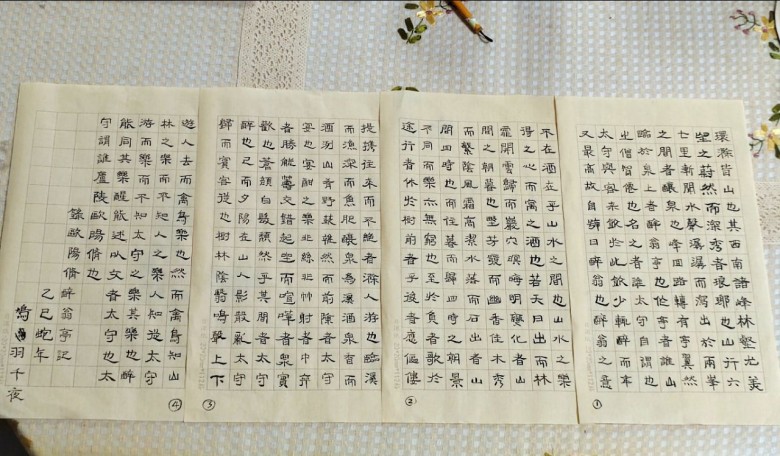 環滁皆山也其西南諸峰林壑尤美
望之蔚然而深秀者瑯琊也山行六
七里漸聞水聲潺潺而瀉出於兩峯
之間者釀泉也峰回路轉有亭翼然
臨於泉上者醉翁亭也作亭者誰山
之僧智僊也名之者誰太守自謂也
太守與客來飲於此飲少輒醉而年
又最高故自號曰醉翁也醉翁之意
①
不在酒在乎山水之間也山水之樂
得之心而寓之酒也若夫日出而林
霏開雲歸而巖穴暝晦明變化者山
間之朝暮也野芳發而幽香佳木秀
而繁陰風霜高潔水落而石出者山
間四時也而往暮而歸四時之朝景
不同而樂亦無窮也至於負者歌於
途行者休於樹前者乎後者應傴僂
②
提携往來而不絶者滁人游也臨溪
而漁深而魚肥釀泉為溪酒泉香而
酒洌山肴野蔌雜然而前陳者太守
宴也宴酣之樂非絲非竹射者中弈
者勝觥籌交錯起坐而喧嘩者衆賓
歡也蒼顏白髮頹然乎其間者太守
醉也已而夕陽在山人影散亂太守
歸而賓客從也樹林陰翳鳴聲上下
③
遊人去而禽鳥樂也然而禽鳥知山
林之樂而不知人之樂人知從太守
游而樂而不知太守之樂其樂也醉
能同其樂醒能述以文者太守也太
守謂誰廬陵歐陽脩也
錄歐陽脩醉翁亭記
乙巳蛇年
羽千夜
④